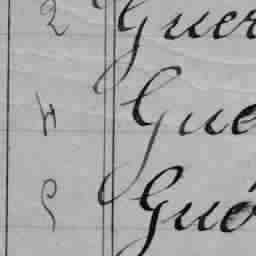 2 Guer
4 Gue
5 Gué